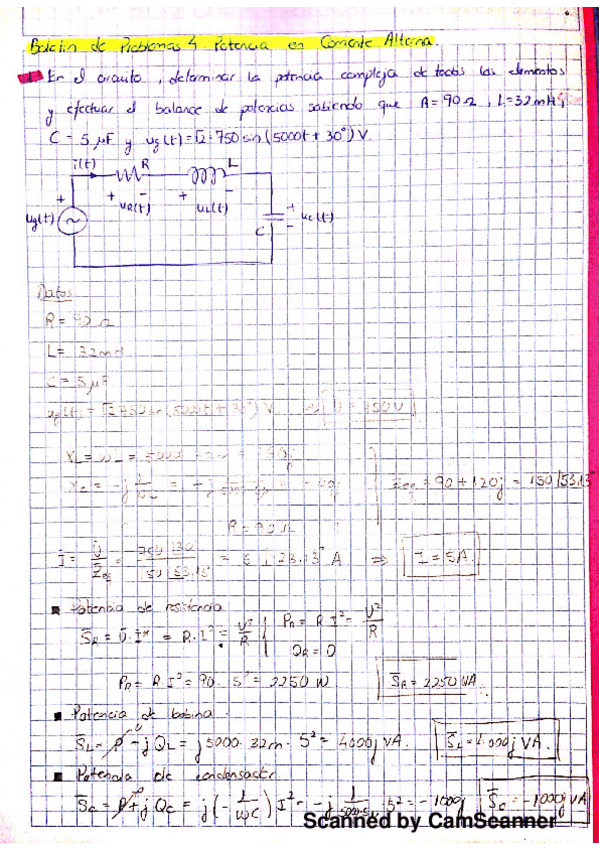 Boletín de Problemas 4 Potencia en Corriente Alterna.
1. En el circuito, determinar la potencia compleja de todos los elementos
y efectuar el balance de potencias sabiendo que R=90Ω, L=32mH,
C=5μF y ug(t)=√2·750sin(5000t+30°)V
i(t) R L
+ - + -
ug(t) ~ uR(t) uL(t) C + - uc(t)
Datos
R=90Ω
L=32mH
C=5μF
ug(t)=√2·750sin(5000t+30°)V U=750V
XL=ωL=5000
Xc=-j 1/ωC = -j
Zeq=90+120j=150|53,13
R=90Ω
I=U/Zeq=750|30°/150|53,13 = 5|-23.13° A ⇒ I=5A.
■ Potencia de resistencia
S̄R=Ū·I* = R·I²=U²/R PR=R·I²=U²/R
QR=0
PR=R·I²=90·5²=2250W S̄R=2250VA.
■ Potencia de bobina.
S̄L=P+jQL=j5000·32m·5²=4000jVA. S̄L=4000jVA.
■ Potencia de condensador
S̄c=P+jQc=j(-1/ωC)I²=-j 1/5000·5μ ·5²=-1000j S̄c=-1000jVA
Scanned by CamScanner